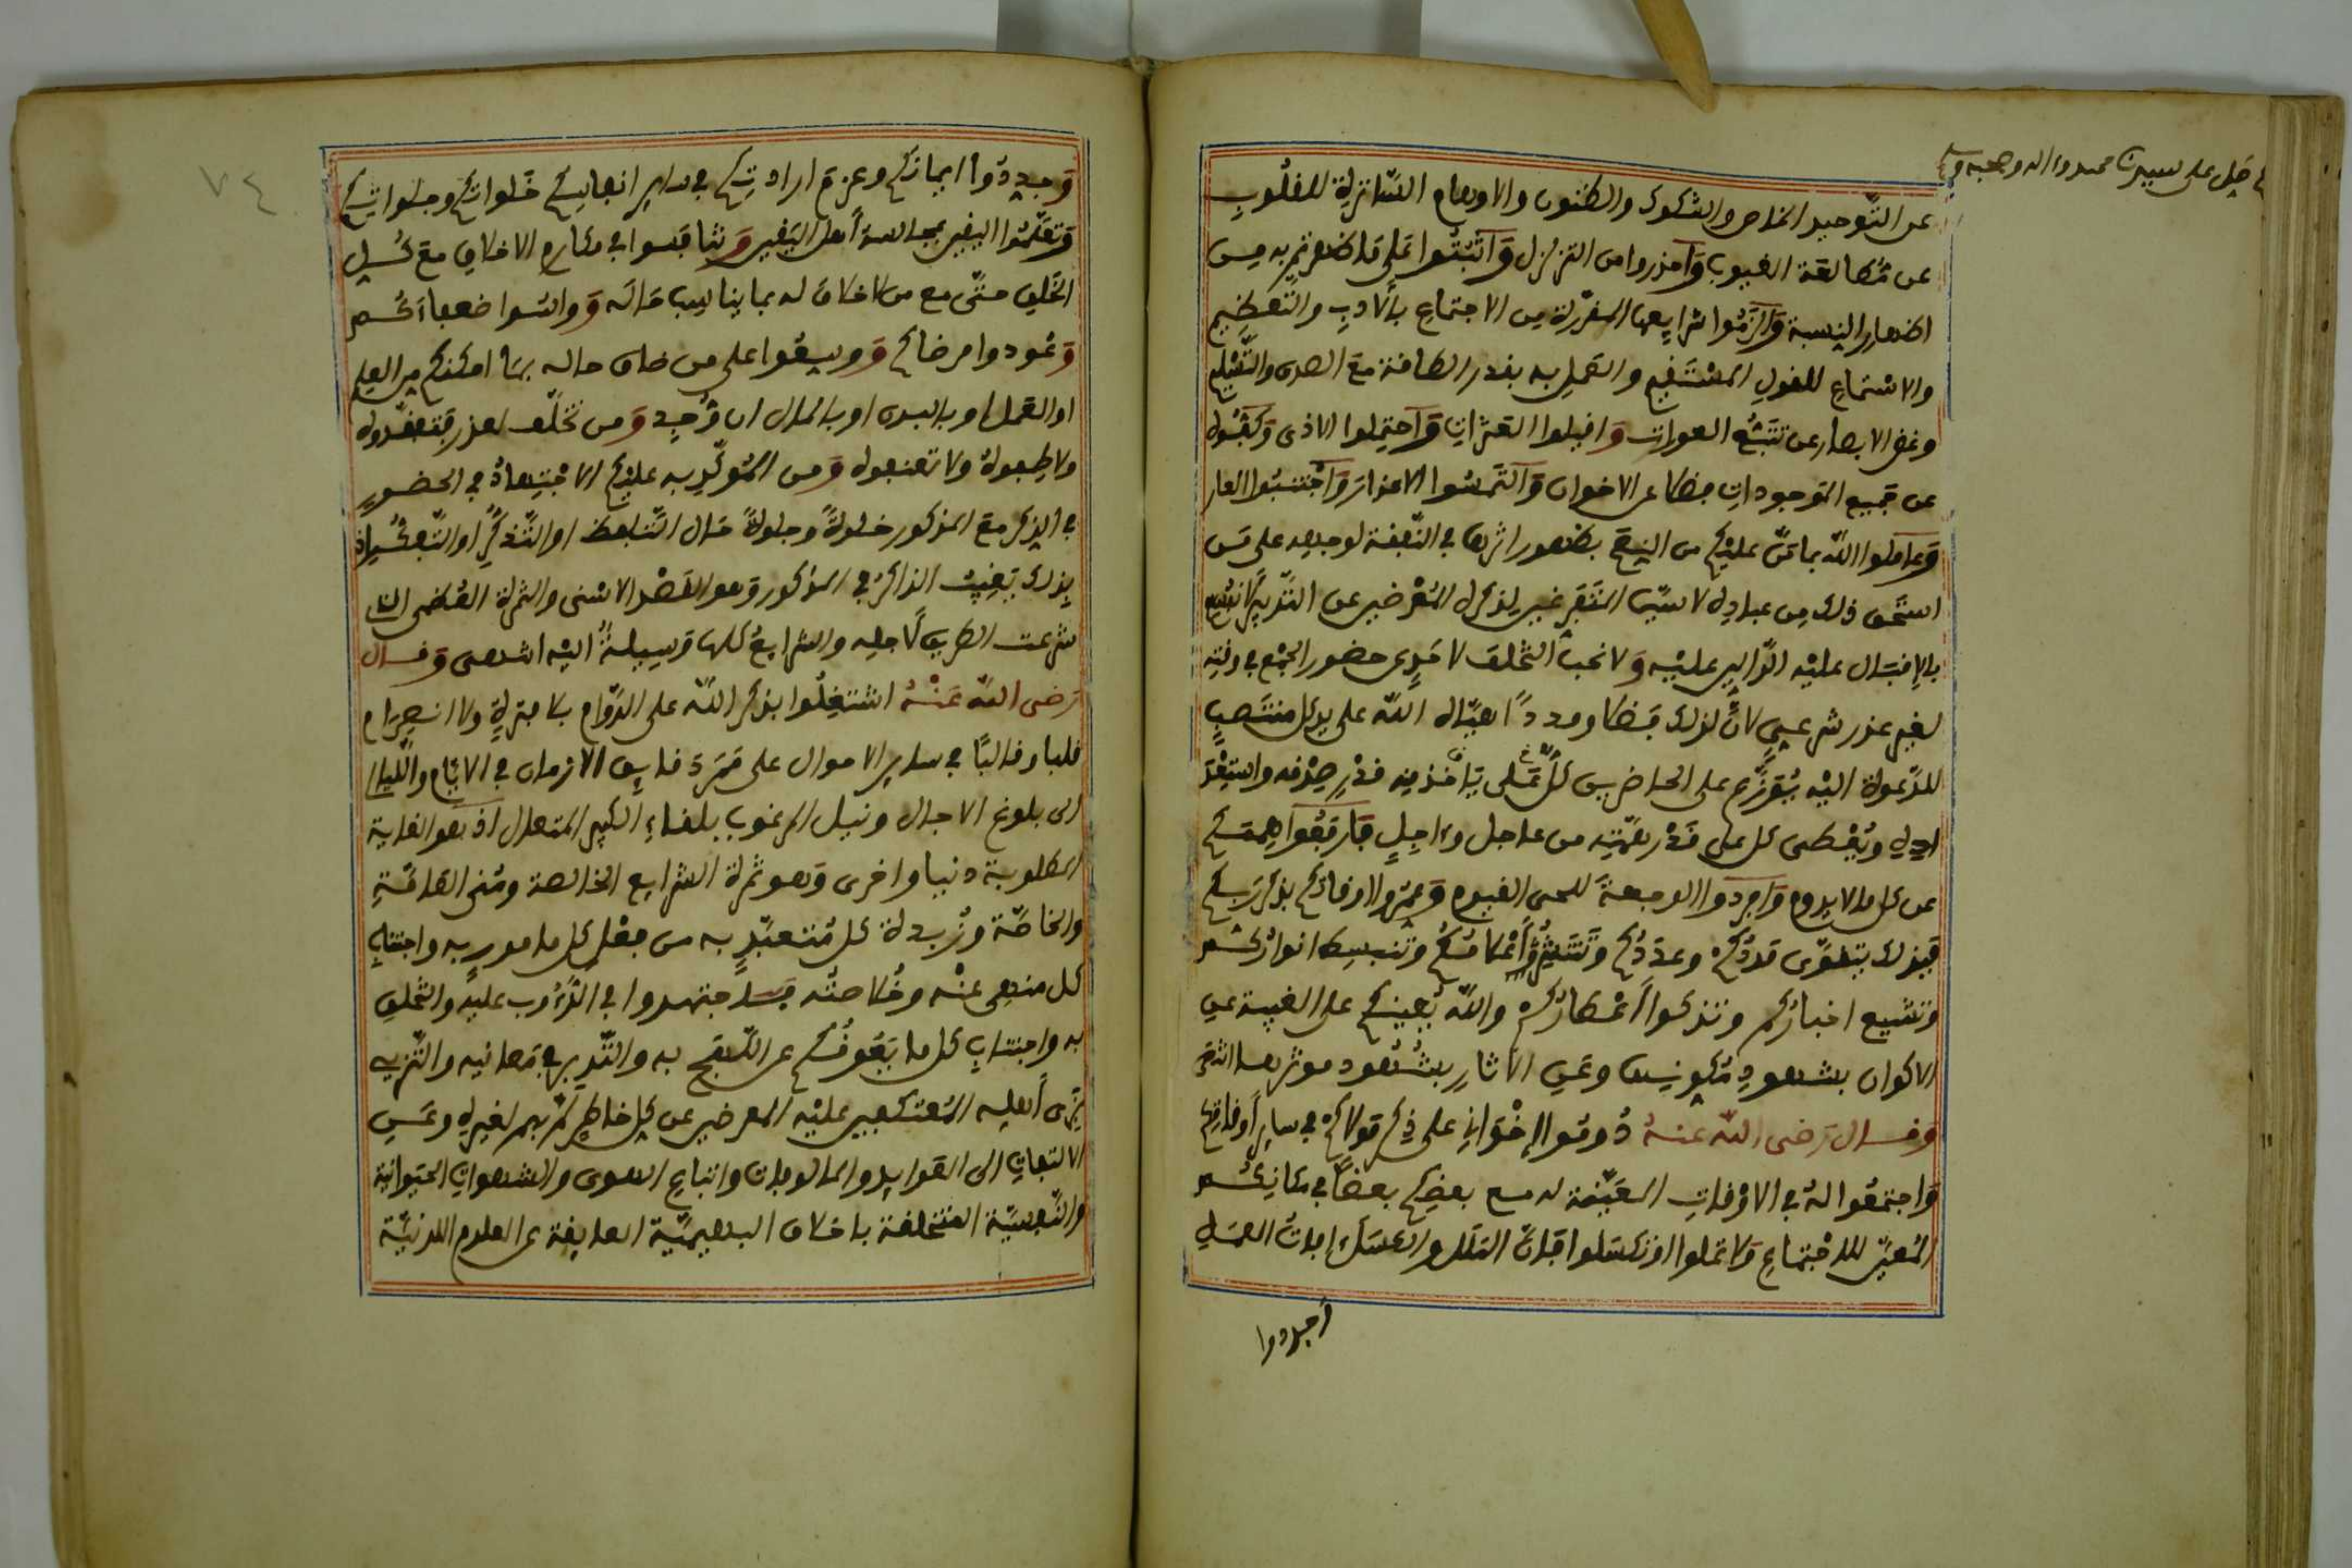 صل على سيدنا محمد واله وصحبه
عن التّوحيد الخاص والشكوك والظنون والاوهام السّاترة للقلوب
عن مُطالعة الغيوب وَاحذروا من التزلزل وَاثبُتُوا عَلى ما ظفرتم به من
اظهار النسبة وَالزَمُوا شرايعها المقرّرة من الاجتماع بالادب والتعظيم
والاستماع للقول المستقيم والعمل به بقدر الطاقة مع الصدق والتّسليم
وغض الابصار عن تتبّع العورات وَاقبلوا العثرات وَاحتملوا الاذى
عن جميع الموجودات فضلا عن الاخوان وَالتمسُوا الاعذار وَاجتنبُوا العار
وَعاملوا اللّه بما مَنّ عليكم من النِعَم بظهور اثرها في النّفقة لوجهه على مَن
استحق ذلك من عباده لا سيّما المتفرغين لذكره المُعْرضين عن التّدبير
بالاقبال عليه الدّالين عليه وَلا نحب التخلف لاحدٍ عن حضور الجمع في وقته
لغير عذر شرعي لانّ لذلك فضلا ومددًا يفيّاله اللّه على يد كل منتصب
للدّعوة اليه يُفرَّق على الحاضرين كلٌّ على ياخذ منه قدر صدقه واستِعْدَ
اده ويُعْطى كل على قَدْر همّته من عاجل واجِل فارفعُوا هِممَكم
عن كل ما لا يدوم وَافردوا الوجهة للحى القيوم وَعمّروا اوقاتكم بذكر ربّكم
فبذلك يتقوّى مَددُكم وعددُكم وتنتشرُ اعْلامُكم وتنبسط انوارُكم
وتشيع اخباركم وتذكوا اعْطارُكم واللّه يُعينكم على الغيبة عن
الاكوان بشهودِ مُكونها وعَن الاثارِ بشُهود موثرها انتهى
وَقال رَضى اللّه عنهُ دُومُوا اِخْوَانِي على ذِكر مَولاكم في ساير أوقاتكم
وَاجتمعُوا لهُ في الاوْقاتِ المعَيّنة له مع بعضكم بعضاً في مكانِكُم
المُعيّن للاجتماع وَلا تملوا او تكسَلوا فإنّ الملل والكسَل افات العمَل
وجددوا
٧٤
وَجددوا ايمانكم وعزم ارادتكم في ساير انفاسِكم خَلواتكم وجلواتكم
وَتعلّمُوا اليقين بمجالسة أهل اليَقين وَتنافسوا في مكارم الاخلاق مع كُل
الخلق حتّى مع من لا خلاق له بما يناسب حَاله وَواسوا ضعفاءَكُم
وَعُودوا مرضاكم وَوسِعُوا على من ضاق حاله بما امكنكم من العِلم
او العَمل او بالبدن او بالمال ان وُجِد وَمن تخلّف لعذر فتفقّدوه
ولاطِفوهُ ولا تعنفوه وَمن المُوكّدِ به عليكم الاجتِهادُ في الحضور
في الذِكر مع المذكور خلوةً وجلوةً حَال التّلفظ او التّذكّر او التّفكّر اذ
بذلك يَغيبُ الذاكرُ في المذكور وَهو القَصْد الاسْنى والثمرة القُصْوى التى
شرعت الطريق لاجله والشرايعُ كلها وَسيلةٌ اليْه انتهى وَقال
رَضى اللّه عَنْهُ اشتغِلُوا بذكر اللّه على الدّوام بلا فترةٍ ولا انصِرام
قلبا وقالبًا في ساير الاحوال على مَمَرِّ دقايق الازمان في الايّام واللّيال
الى بلوغ الاجال ونيل المرغوب بلقاءِ الكبير المتعال اذ هو الغاية
المطلوبة دنيا واخرى وَهو ثمرة الشرايع الخالصة ومُنى العَامّةِ
والخاصّة وزُبدة كل مُتعبَّدٍ به من فعْل كل مامورٍ به واجتناب
كل منهى عنْه وخُلاصتُه فاجتهدوا في الدُّءُوب عليه والتخلق
به واجتناب كل ما يَعُوقُكم عن اللّهج به والتّدبر في مَعانيه والتّنزيه
يَرْى أهله المُعتكفين عليْه المعرضين عن كل خاطر يمر بهم لغيره وعَنِ
الالتفات الى العَوايد والمالوفات واتباع الهوى والشهوات الحيَوانية
والنّفسيّة المتخلقة باخلاق البهيميّة العايقة عن العلوم اللدنيّة